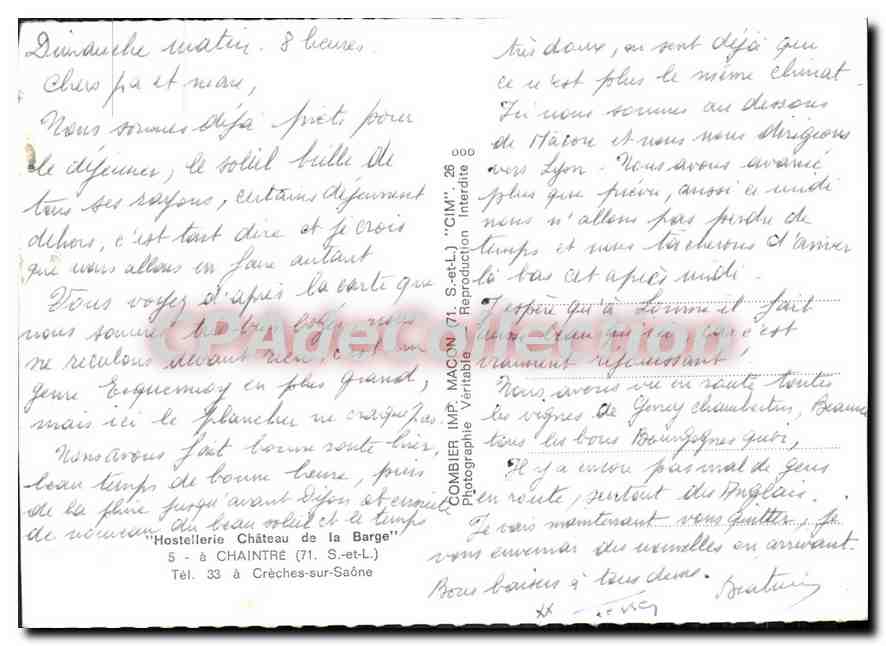 Dimanche matin. 8 heures.
Chers pa et mam,
Nous sommes déjà prêts pour
le déjeuner, le soleil brille de
tous ses rayons, certains déjeunent
dehors, c'est tout dire et je crois
que nous allons en faire autant
Vous voyez d'après la carte que
nous sommes très bien logés, nous
ne reculons devant rien, c'est un
genre Esquermoy en plus grand,
mais ici le plancher ne craque pas.
Nous avons fait bonne route hier,
beau temps de bonne heure, puis
de la pluie jusqu'avant Dijon et ensuite
de nouveau du beau soleil et le temps
"Hostellerie Château de la Barge"
5 - à CHAINTRÉ (71. S.-et-L.)
Tél. 33 à Crèches-sur-Saône
COMBIER IMP. MACON (71. S.-et-L.) "CIM". 26 000
Photographie Véritable - Reproduction Interdite
très doux, on sent déjà que
ce n'est plus le même climat.
Ici nous sommes au dessous
de Mâcon et nous nous dirigeons
vers Lyon. Nous avons avancé
plus que prévu, aussi ce midi
nous n'allons pas perdre de
temps et nous tâcherons d'arriver
là bas cet après midi.
J'espère qu'à Lomme il fait
aussi beau que ici, car c'est
vraiment réjouissant !
Nous avons vu en route toutes
les vignes de Gevrey chambertin, Beaune
tous les bons Bourgognes quoi,
Il y a encore pas mal de gens
en route, surtout des Anglais.
Je vais maintenant vous quitter, je
vous enverrai des nouvelles en arrivant.
Bons baisers à tous deux.
CPAdeCollection.com